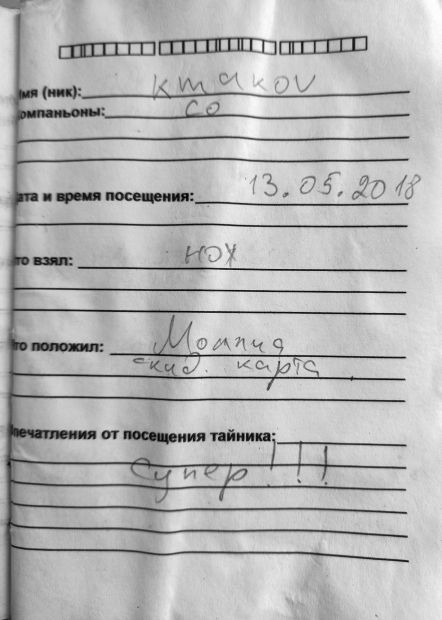 мя (ник): kmakov
омпаньоны: со
ата и время посещения: 13.05.2018
то взял: нож
то положил:
скид. карта
печатления от посещения тайника:
Супер!!!